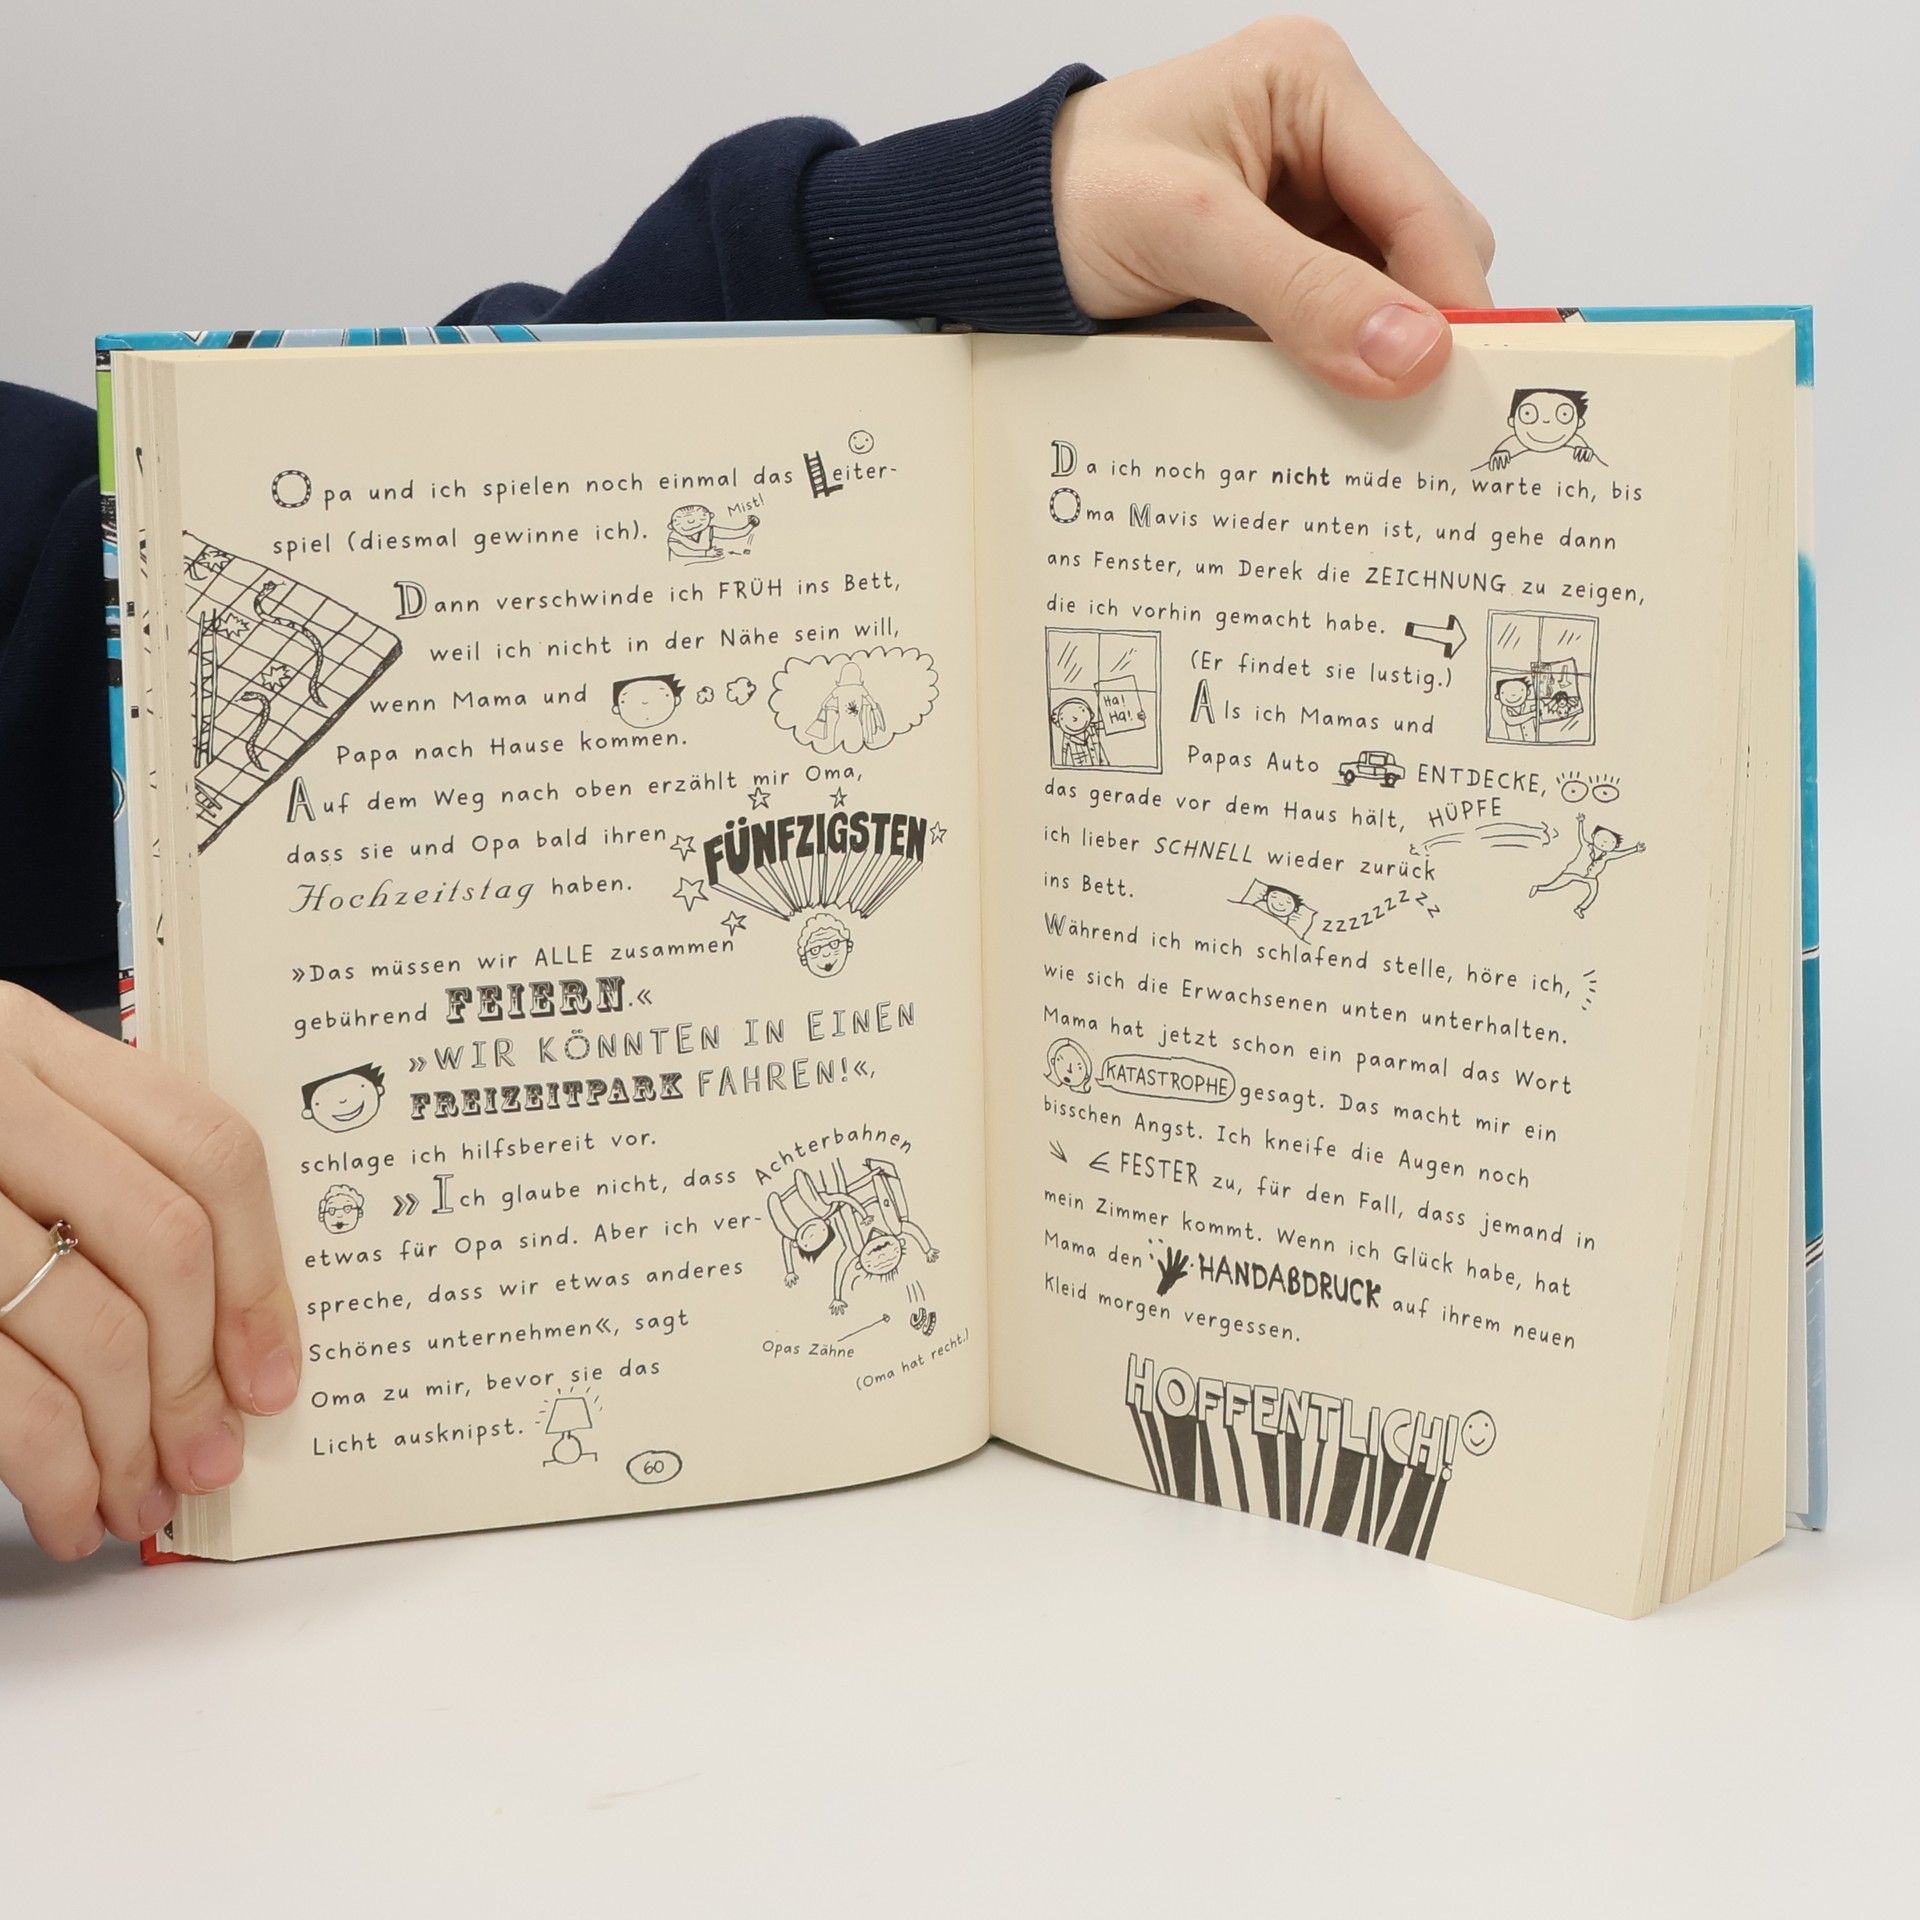 Opa und ich spielen noch einmal das Leiter-
spiel (diesmal gewinne ich).
Mist!
Dann verschwinde ich FRÜH ins Bett,
weil ich nicht in der Nähe sein will,
wenn Mama und
Papa nach Hause kommen.
Auf dem Weg nach oben erzählt mir Oma,
dass sie und Opa bald ihren
FÜNFZIGSTEN
Hochzeitstag haben.
»Das müssen wir ALLE zusammen
gebührend FEIERN.«
»WIR KÖNNTEN IN EINEN
FREIZEITPARK FAHREN!«,
schlage ich hilfsbereit vor.
»Ich glaube nicht, dass Achterbahnen
etwas für Opa sind. Aber ich ver-
spreche, dass wir etwas anderes
Schönes unternehmen«, sagt
Oma zu mir, bevor sie das
Licht ausknipst.
Opas Zähne
(Oma hat recht.)
60
Da ich noch gar nicht müde bin, warte ich, bis
Oma Mavis wieder unten ist, und gehe dann
ans Fenster, um Derek die ZEICHNUNG zu zeigen,
die ich vorhin gemacht habe.
(Er findet sie lustig.)
Ha!
Ha!
Als ich Mamas und
Papas Auto ENTDECKE,
das gerade vor dem Haus hält, HÜPFE
ich lieber SCHNELL wieder zurück
ins Bett.
zzzzzzzzzz
Während ich mich schlafend stelle, höre ich,
wie sich die Erwachsenen unten unterhalten.
Mama hat jetzt schon ein paarmal das Wort
KATASTROPHE gesagt. Das macht mir ein
bisschen Angst. Ich kneife die Augen noch
FESTER zu, für den Fall, dass jemand in
mein Zimmer kommt. Wenn ich Glück habe, hat
Mama den HANDABDRUCK auf ihrem neuen
Kleid morgen vergessen.
HOFFENTLICH!